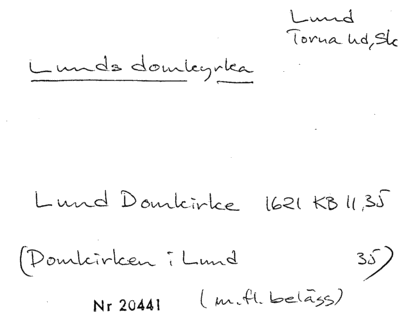 Lund
Torna hd, Sk
Lunds domkyrka
Lund Domkirke 1621 KB 11,35
(Domkirken i Lund 35)
Nr 20441 (m.fl. belägg)